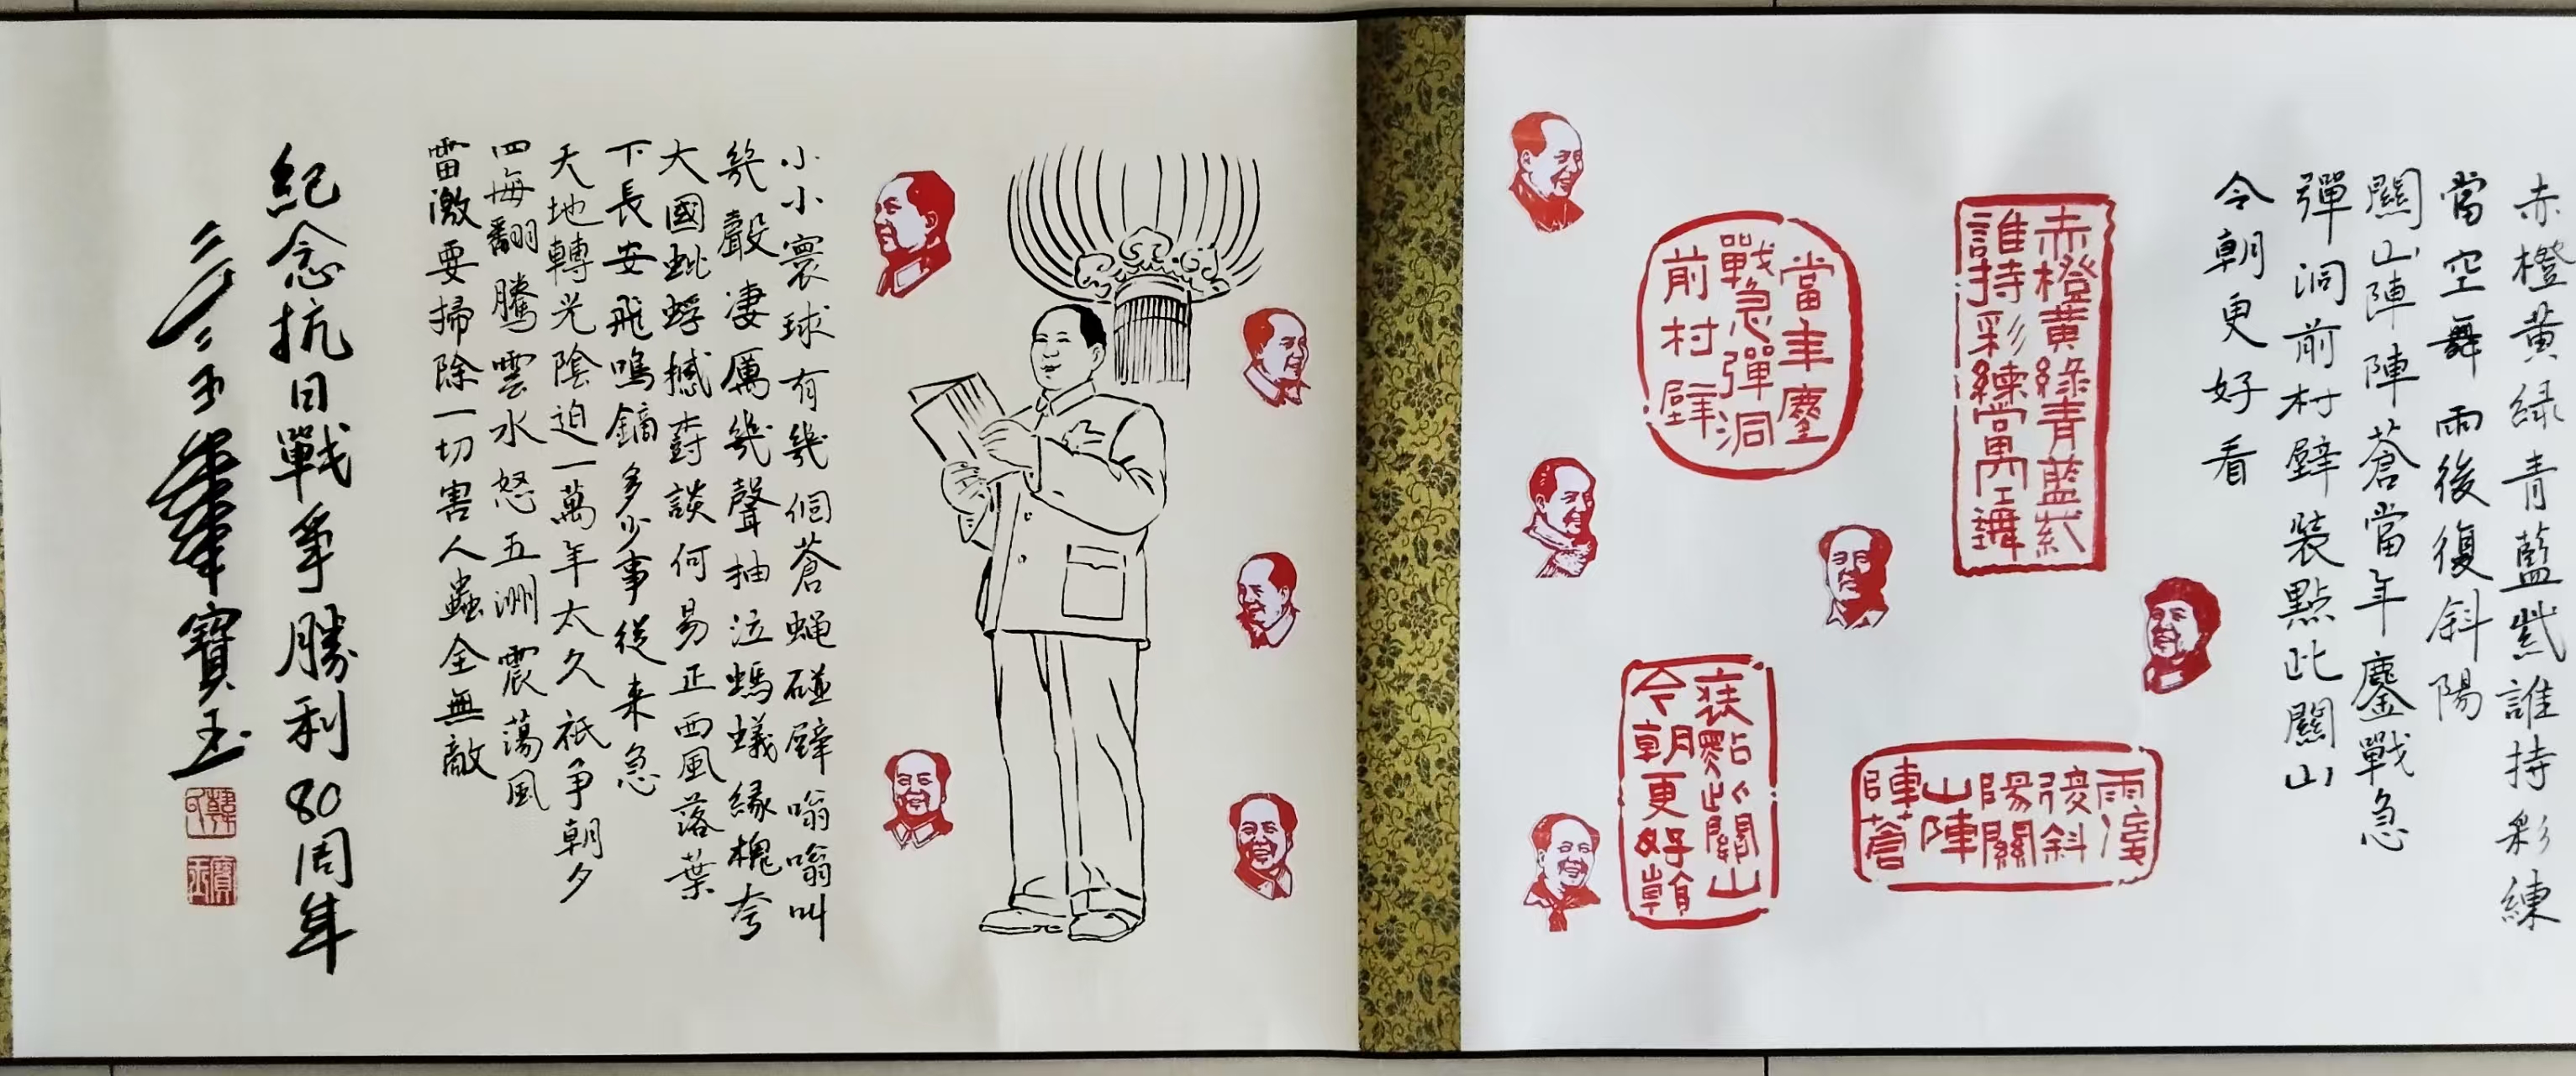 赤橙黄绿青藍紫誰持彩練
當空舞雨後復斜陽
關山陣陣蒼當年鏖戰急
彈洞前村壁裝點此關山
今朝更好看
赤橙黄綠青藍紫
誰持彩練當空舞
雨後
復斜
陽關
山陣
陣蒼
當年鏖
戰急彈洞
前村壁
裝點此關山
今朝更好
小小寰球有幾個蒼蝿碰壁嗡嗡叫
幾聲凄厲幾聲抽泣螞蟻緣槐夸
大國蚍蜉撼樹談何易正西風落葉
下長安飛鳴鏑多少事從来急
天地轉光陰迫一萬年太久祗争朝夕
四海翻騰雲水怒五洲震蕩風
雷激要掃除一切害人蟲全無敵
紀念抗日戰争勝利80周年
寶玉